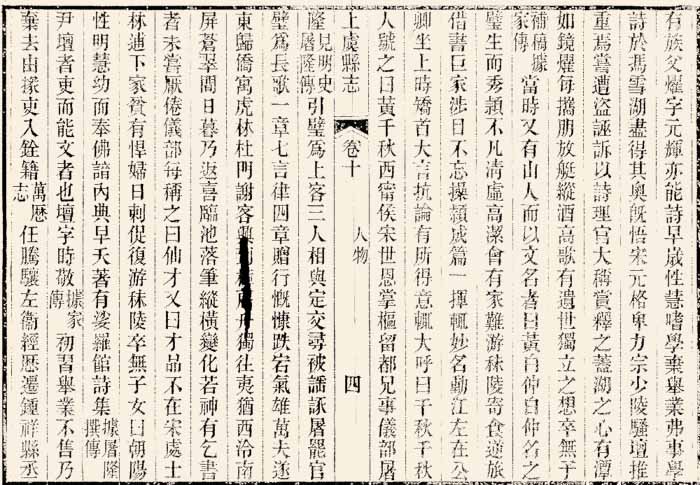 有族父燿字元輝亦能詩早歲性慧嗜學棄舉業弗事學
詩於馮雪湖盡得其奧旣悟宋元格卑力宗少陵騷壇推
重焉嘗遭盜誣訴以詩理官大稱賞釋之蓋湖之心有潭
如鏡燿每攜朋放艇縱酒高歌有遺世獨立之想卒無子
補稿據家傳 當時又有山人而以文名者曰黃自仲自仲名之
璧生而秀穎不凡清虛高潔會有家難游秣陵寄食逆旅
借書巨家涉目不忘操穎成篇一揮輒妙名動江左在公
卿坐上時矯首大言抗論有所得意輒大呼曰千秋千秋
人號之曰黃千秋西甯侯宋世恩掌樞留都兄事儀部屠
上虞縣志 卷十 人物 四
隆見明史屠隆傳 引璧爲上客三人相與定交尋被謠諑屠罷官
璧爲長歌一章七言律四章贈行慨慷跌宕氣雄萬夫遂
東歸僑寓虎林杜門謝客 舟獨往夷猶西泠南
屏蒼翠間日暮乃返喜臨池落筆縱橫變化若神有乞書
者未嘗厭倦儀部每稱之曰仙才又曰才品不在宋處士
林逋下家貧有悍婦日剌促復游秣陵卒無子女曰朝陽
性明慧幼而奉佛諳內典早夭著有娑羅館詩集據屠隆撰傳
尹壇者吏而能文者也壇字時敬據家傳 初習舉業不售乃
棄去由掾吏入銓籍萬歷志 任騰驤左衞經歷遷鍾祥縣丞